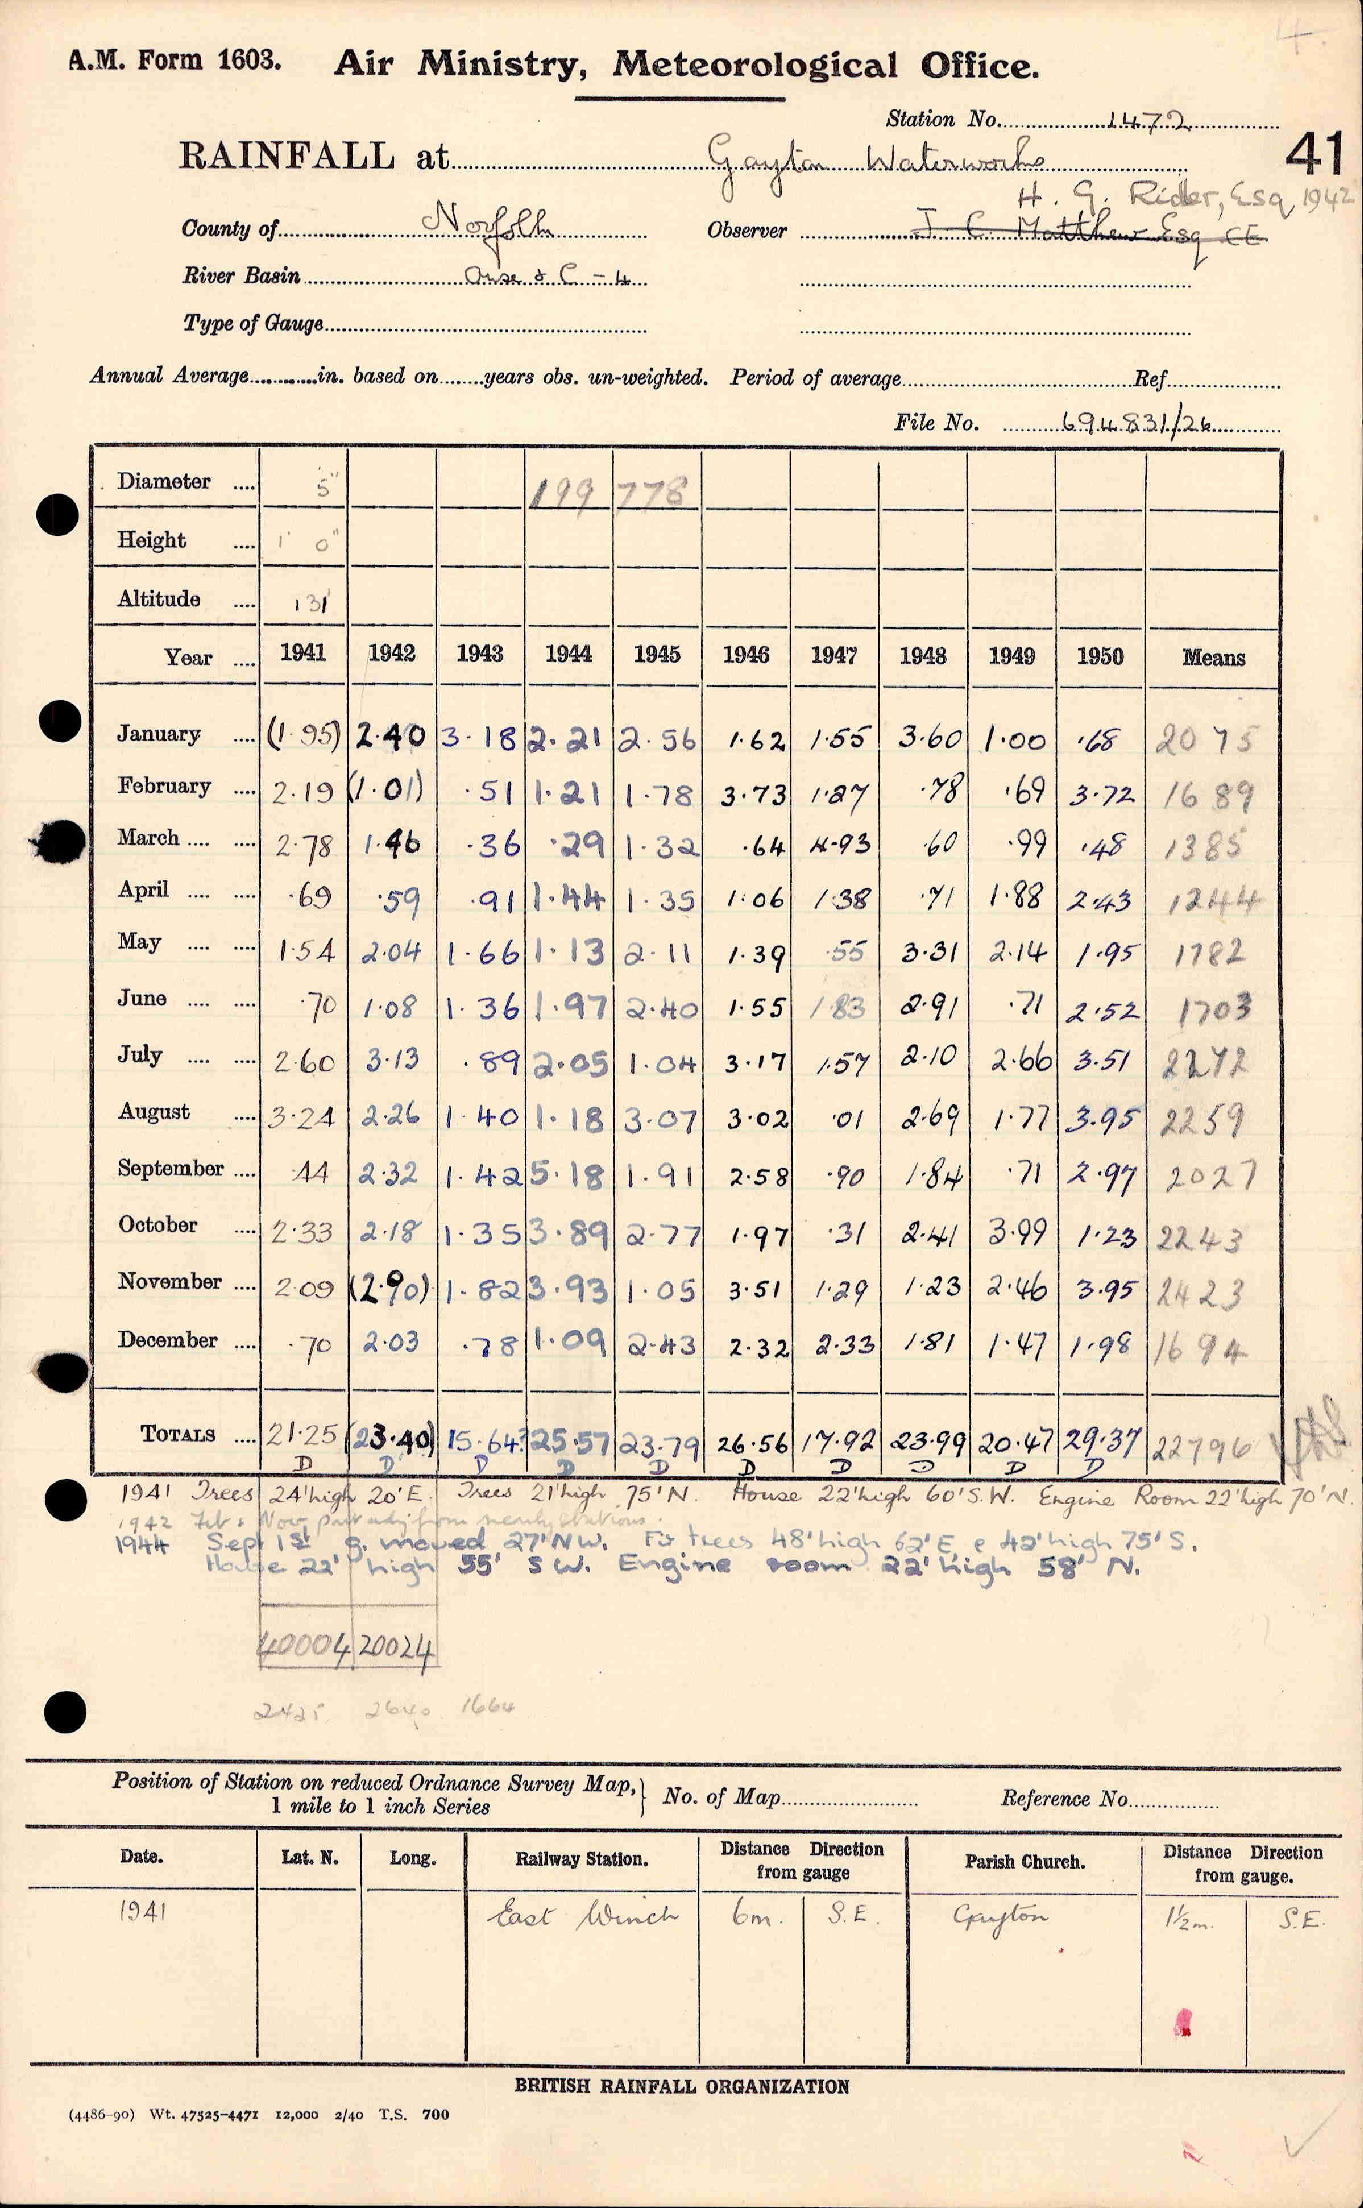 4.
A.M. Form 1603. Air Ministry, Meteorological Office.
Station No. 1472
41
RAINFALL at Gayton Waterworks
H. G. Rider, Esq 1942
County of Norfolk Observer J C Matthew Esq CE
River Basin Ouse & C - 4
Type of Gauge
Annual Average in. based on years obs. un-weighted. Period of average Ref
File No. 694831/26
Diameter .... 5" 199 778
Height .... 1' 0"
Altitude .... 131
Year .... 1941 1942 1943 1944 1945 1946 1947 1948 1949 1950 Means
January .... (1.95) 2.40 3.18 2.21 2.56 1.62 1.55 3.60 1.00 .68 2075
February .... 2.19 (1.01) .51 1.21 1.78 3.73 1.27 .78 .69 3.72 1689
March .... .... 2.78 1.46 .36 .29 1.32 .64 4.93 .60 .99 .48 1385
April .... .... .69 .59 .91 1.44 1.35 1.06 1.38 .71 1.88 2.43 1244
May .... .... 1.54 2.04 1.66 1.13 2.11 1.39 .55 3.31 2.14 1.95 1782
June .... .... .70 1.08 1.36 1.97 2.40 1.55 1.83 2.91 .71 2.52 1703
July .... .... 2.60 3.13 .89 2.05 1.04 3.17 1.57 2.10 2.66 3.51 2272
August .... 3.24 2.26 1.40 1.18 3.07 3.02 .01 2.69 1.77 3.95 2259
September .... .44 2.32 1.42 5.18 1.91 2.58 .90 1.84 .71 2.97 2027
October .... 2.33 2.18 1.35 3.89 2.77 1.97 .31 2.41 3.99 1.23 2243
November .... 2.09 (2.90) 1.82 3.93 1.05 3.51 1.29 1.23 2.46 3.95 2423
December .... .70 2.03 .78 1.09 2.43 2.32 2.33 1.81 1.47 1.98 1694
TOTALS .... 21.25 (23.40) 15.64? 25.57 23.79 26.56 17.92 23.99 20.47 29.37 22796
D D D D D D D D D D
1941 Trees 24'high 20'E. Trees 21'high 75'N. House 22'high 60'S.W. Engine Room 22'high 70'N.
1942 Feb & Nov part adj from nearby stations.
1944 Sept 1st g. moved 27'NW. Fir trees 48'high 62'E & 42'high 75'S.
House 22' high 55' SW. Engine room 22' high 58' N.
40004 20024
2425 2640 1664
Position of Station on reduced Ordnance Survey Map,
1 mile to 1 inch Series
No. of Map Reference No.
Date. Lat. N. Long. Railway Station. Distance Direction from gauge Parish Church. Distance Direction from gauge.
1941 East Winch 6m. S.E. Gayton 1½m. S.E.
BRITISH RAINFALL ORGANIZATION
(4486-90) Wt. 47525-4471 12,000 2/40 T.S. 700